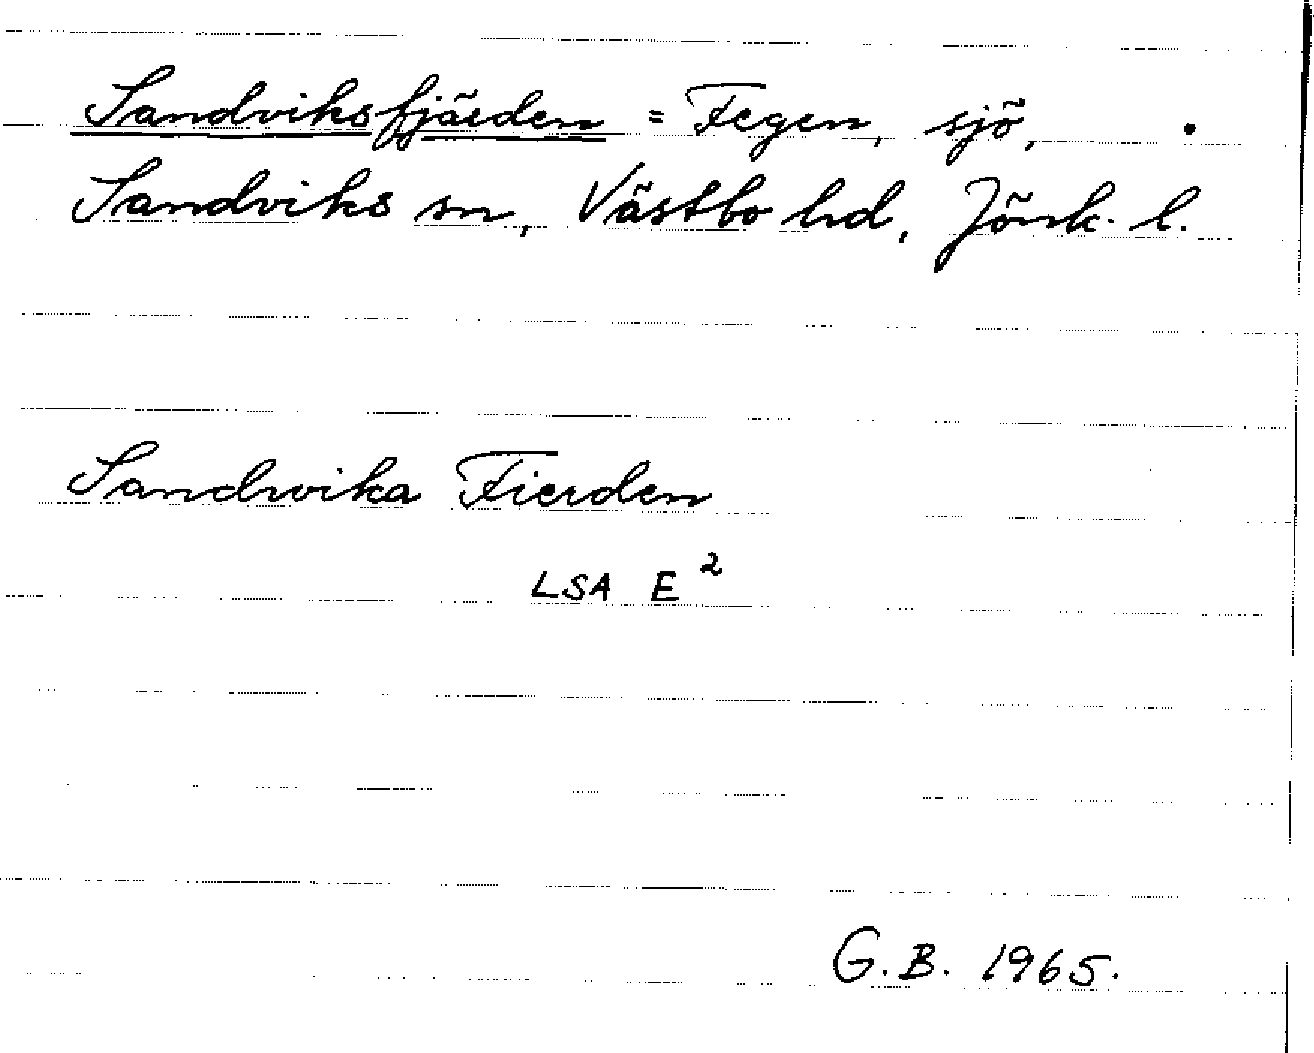 Sandviksfjärden = Fegen, sjö,
Sandviks sn, Västbo hd, Jönk. l.
Sandwika Fierden
LSA E²
G.B. 1965.